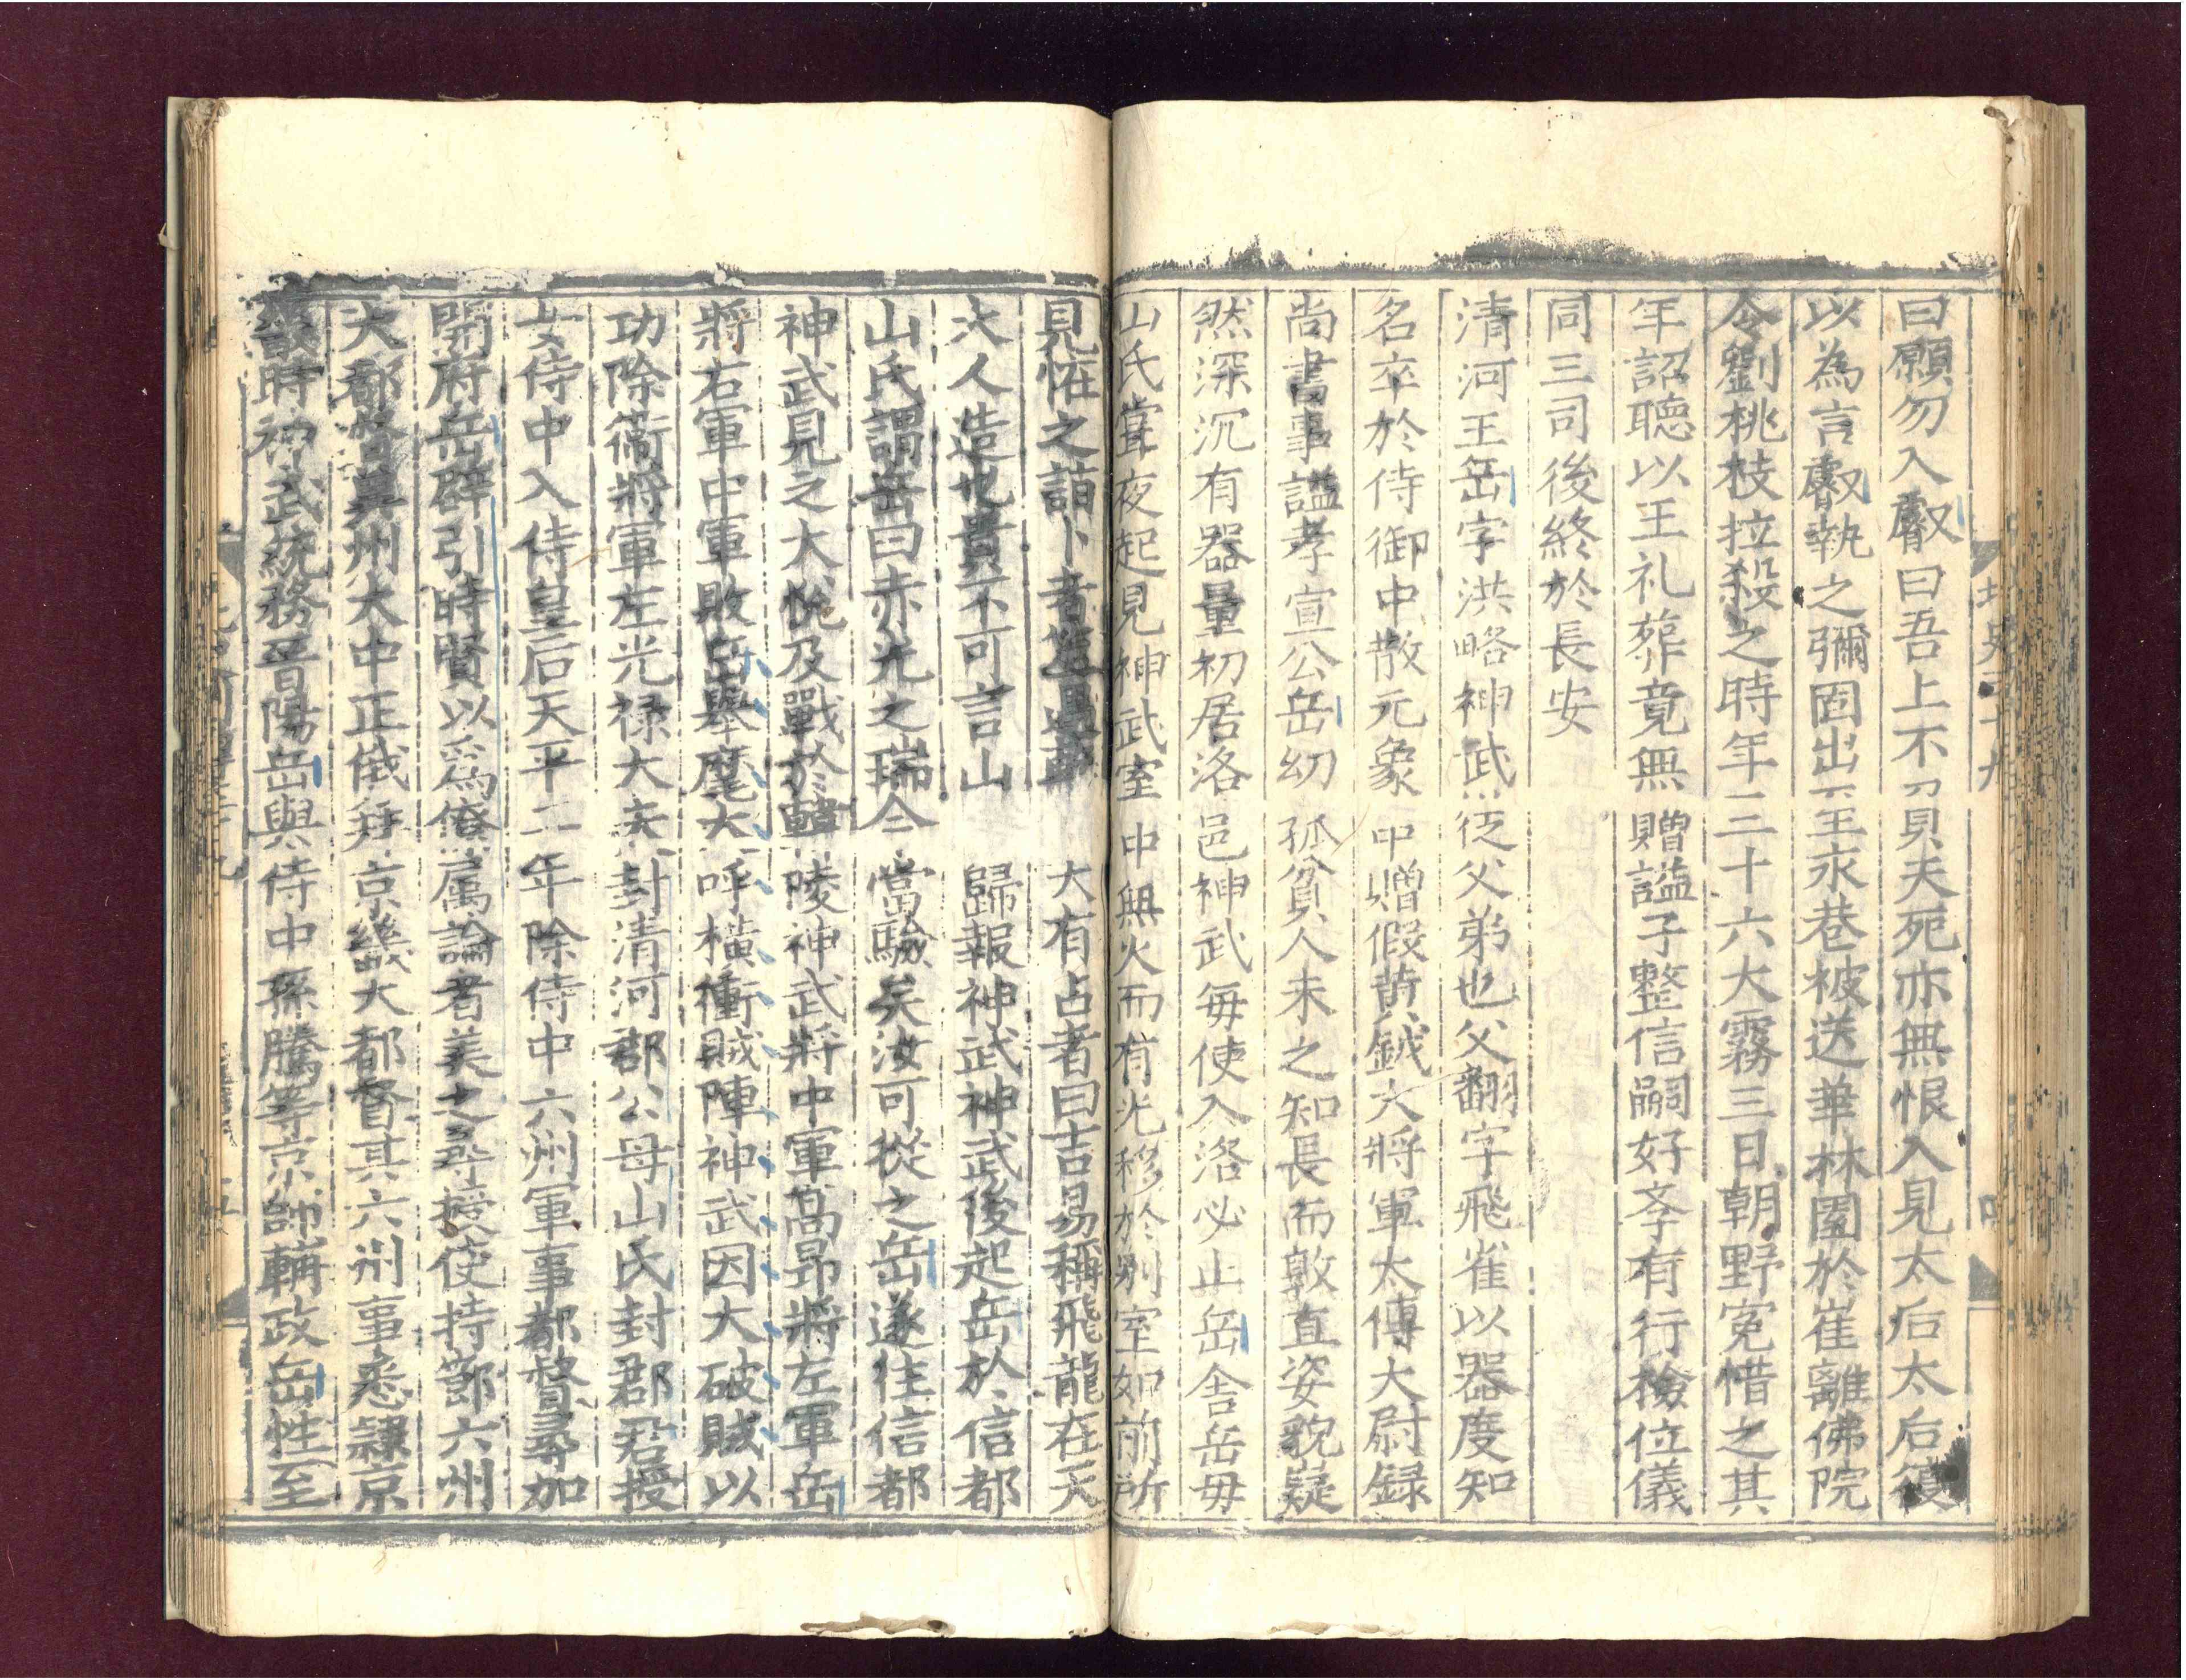 曰願勿入叡曰吾上不負天死亦無恨入見太后太后復
以為言叡執之彌固出至永巷被送華林園於崔離佛院
令劉桃枝拉殺之時年三十六大霧三日朝野寃惜之其
年詔聽以王礼葬竟無贈謚子整信嗣好斈有行檢位儀
同三司後終於長安
清河王岳字洪略神武從父弟也父翻字飛雀以器度知
名卒於侍御中散元象中贈假黄鉞大將軍太傅大尉録
尚書事謚孝宣公岳幼孤貧人未之知長而敦直姿貌嶷
然深沉有器量初居洛邑神武每使入洛必止岳舎岳母
山氏甞夜起見神武室中無火而有光移於别室如前所
見恠之詣卜者筮遇乾大有占者曰吉易稱飛龍在天
大人造也貴不可言山歸報神武神武後起岳於信都
山氏謂岳曰赤光之瑞今當驗矣汝可從之岳遂往信都
神武見之大悅及戰於韓陵神武將中軍高昂將左軍岳
將右軍中軍敗岳舉麾大呼横衝賊陣神武因大破賊以
功除衞將軍左光禄大夫封清河郡公母山氏封郡君授
女侍中入侍皇后天平二年除侍中六州軍事都督尋加
開府岳辟引時賢以爲僚属論者美之尋授使持節六州
大都督兾州大中正俄拜京畿大都督其六州事悉隷京
畿時神武統務晋陽岳與侍中孫騰等京師輔政岳性至